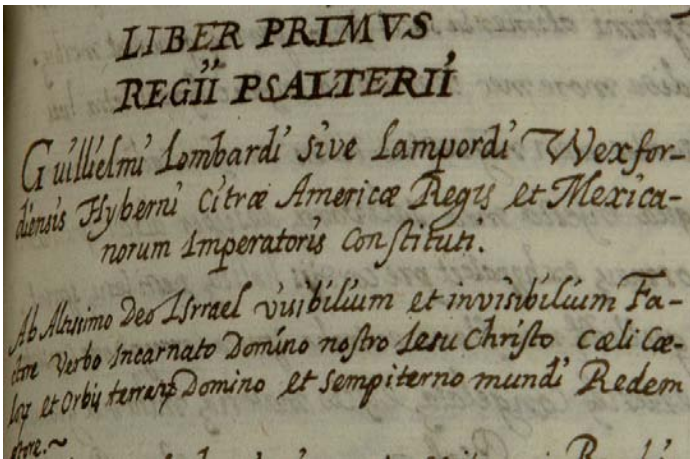 LIBER PRIMVS
REGII PSALTERII
Guillielmi Lombardi sive Lampordi Wexfor-
diensis Hyberni Citræ Americæ Regis et Mexica-
norum Imperatoris Constituti.
Ab Altissimo Deo Isrrael visibilium et invisibilium Fa-
ctore Verbo Incarnato Domino nostro Iesu Christo Cæli Cæ-
et Orbis Domino et sempiterno mundi Redem
ptore.~